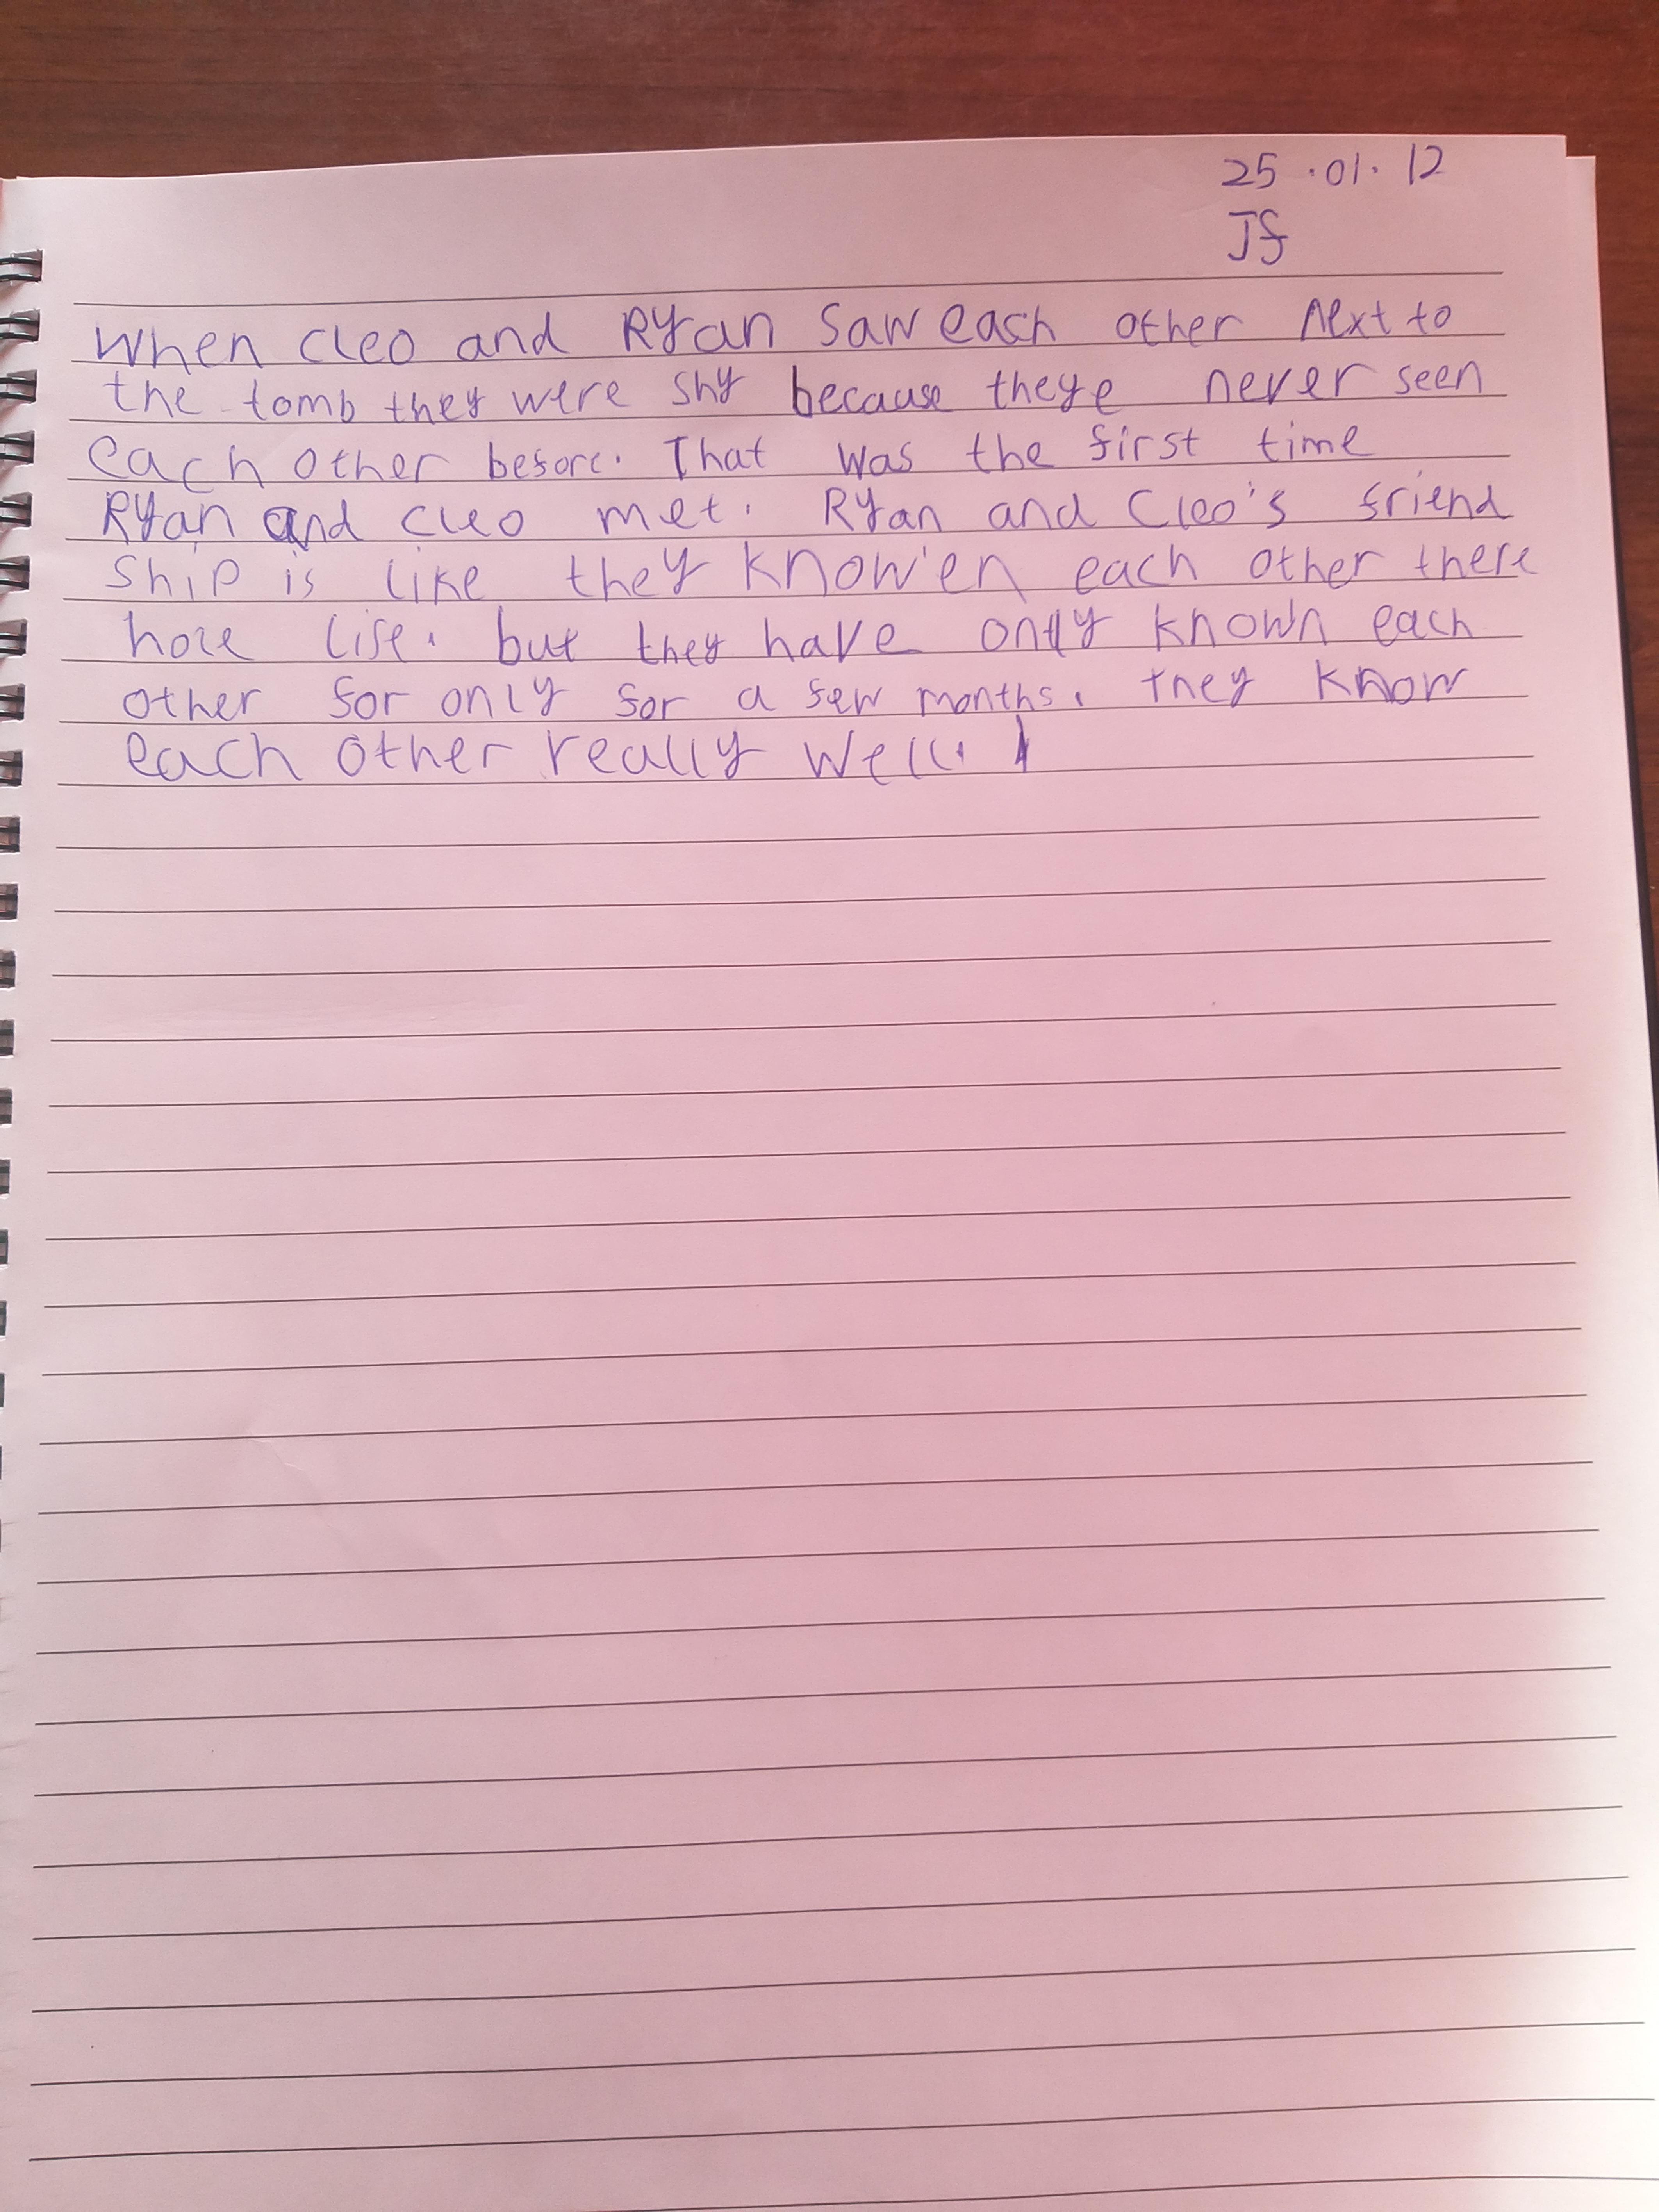 25.01.12
Jf
When cleo and Ryan saw each other next to
the tomb they were shy because theye never seen
each other before. That was the first time
Ryan and cleo met. Ryan and Cleo's friend
ship is like they know'en each other there
hole life. but they have only known each
other for only for a few months. they know
each other really well.